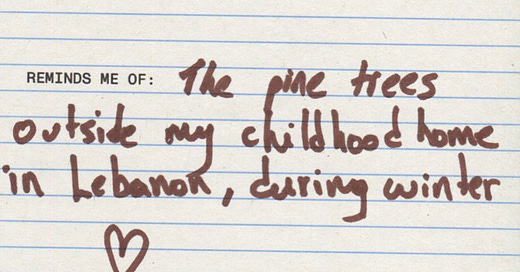 REMINDS ME OF: The pine trees
outside my childhood home
in Lebanon, during winter